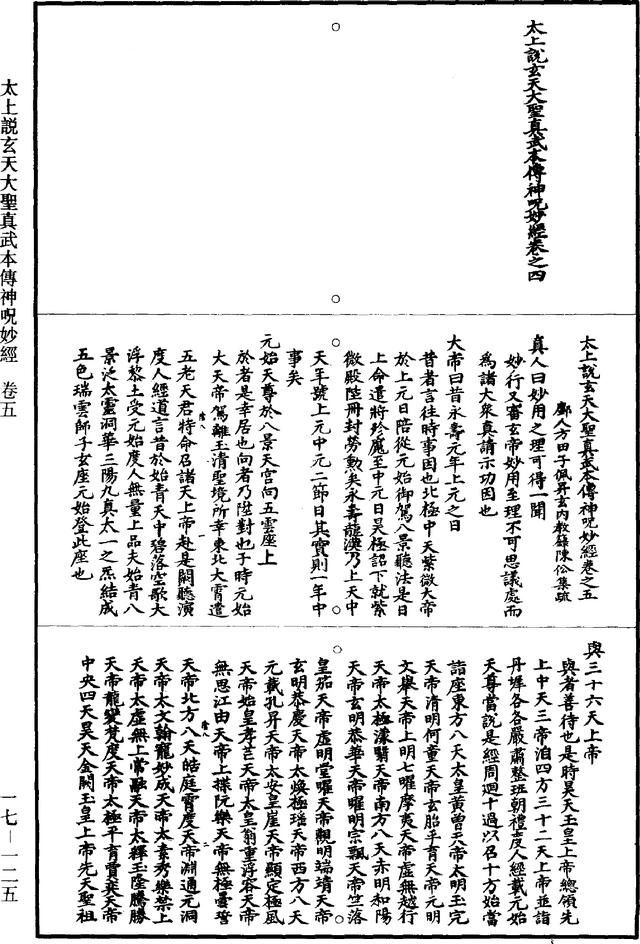 太上說玄天大聖真武本傳神呪妙經 卷五
太上說玄天大聖真武本傳神呪妙經卷之四
太上說玄天大聖真武本傳神呪妙經卷之五
人方田子佩昇玄內教籙陳伀集疏
真人曰妙用之理可得一聞
妙行又審玄帝妙用至理不可思議處而
爲諸大衆真請示功因也
大帝曰昔永壽元年上元之日
昔者言往時事因也北極中天紫微大帝
於上元日陪從元始御駕八景聽法是日
上命遣將殄魔至中元日昊極詔下就紫
微殿陞冊封勞勲矣永壽龍漢乃上天中
天年號上元中元二節日其實則一年中
事矣
元始天尊於八景天宮向五雲座上
於者是幸居也向者乃陞封也于時元始
大天帝駕離玉清聖境所幸東北大霄遣
五老天君特命召諸天上帝赴是闕聽演
度人經道言昔於始青天中碧落空歌大
浮黎土受元始度人無量上品夫始青八
景泛太靈洞華三陽九真太一之炁結成
五色瑞雲師子玄座元始登此座也
與三十六天上帝
與者善待也是時昊天玉皇上帝總領先
上中天三帝洎四方三十二天上帝並詣
丹墀各各嚴肅整班朝禮度人經載元始
天尊當說是經周迴十過以召十方始當
詣座東方八天太皇黃曾天帝太明玉完
天帝清明何重天帝玄胎平育天帝元明
文舉天帝上明七曜摩夷天帝虛無越行
天帝太極濛翳天帝南方八天赤明和陽
天帝玄明恭華天帝曜明宗飄天帝竺落
皇笳天帝虛明堂曜天帝觀明端靖天帝
玄明恭慶天帝太煥極瑶天帝西方八天
元載孔昇天帝太安皇崖天帝顯定極風
天帝始皇孝芒天帝太皇翁重浮容天帝
無思江由天帝上揲阮樂天帝無極曇誓
天帝北方八天皓庭霄度天帝淵通元洞
天帝太文翰寵妙成天帝太素秀樂禁上
天帝太虛無上常融天帝太釋玉隆騰勝
天帝龍變梵度天帝太極平育賈奕天帝
中央四天昊天金闕玉皇上帝先天聖祖
一七—一二五